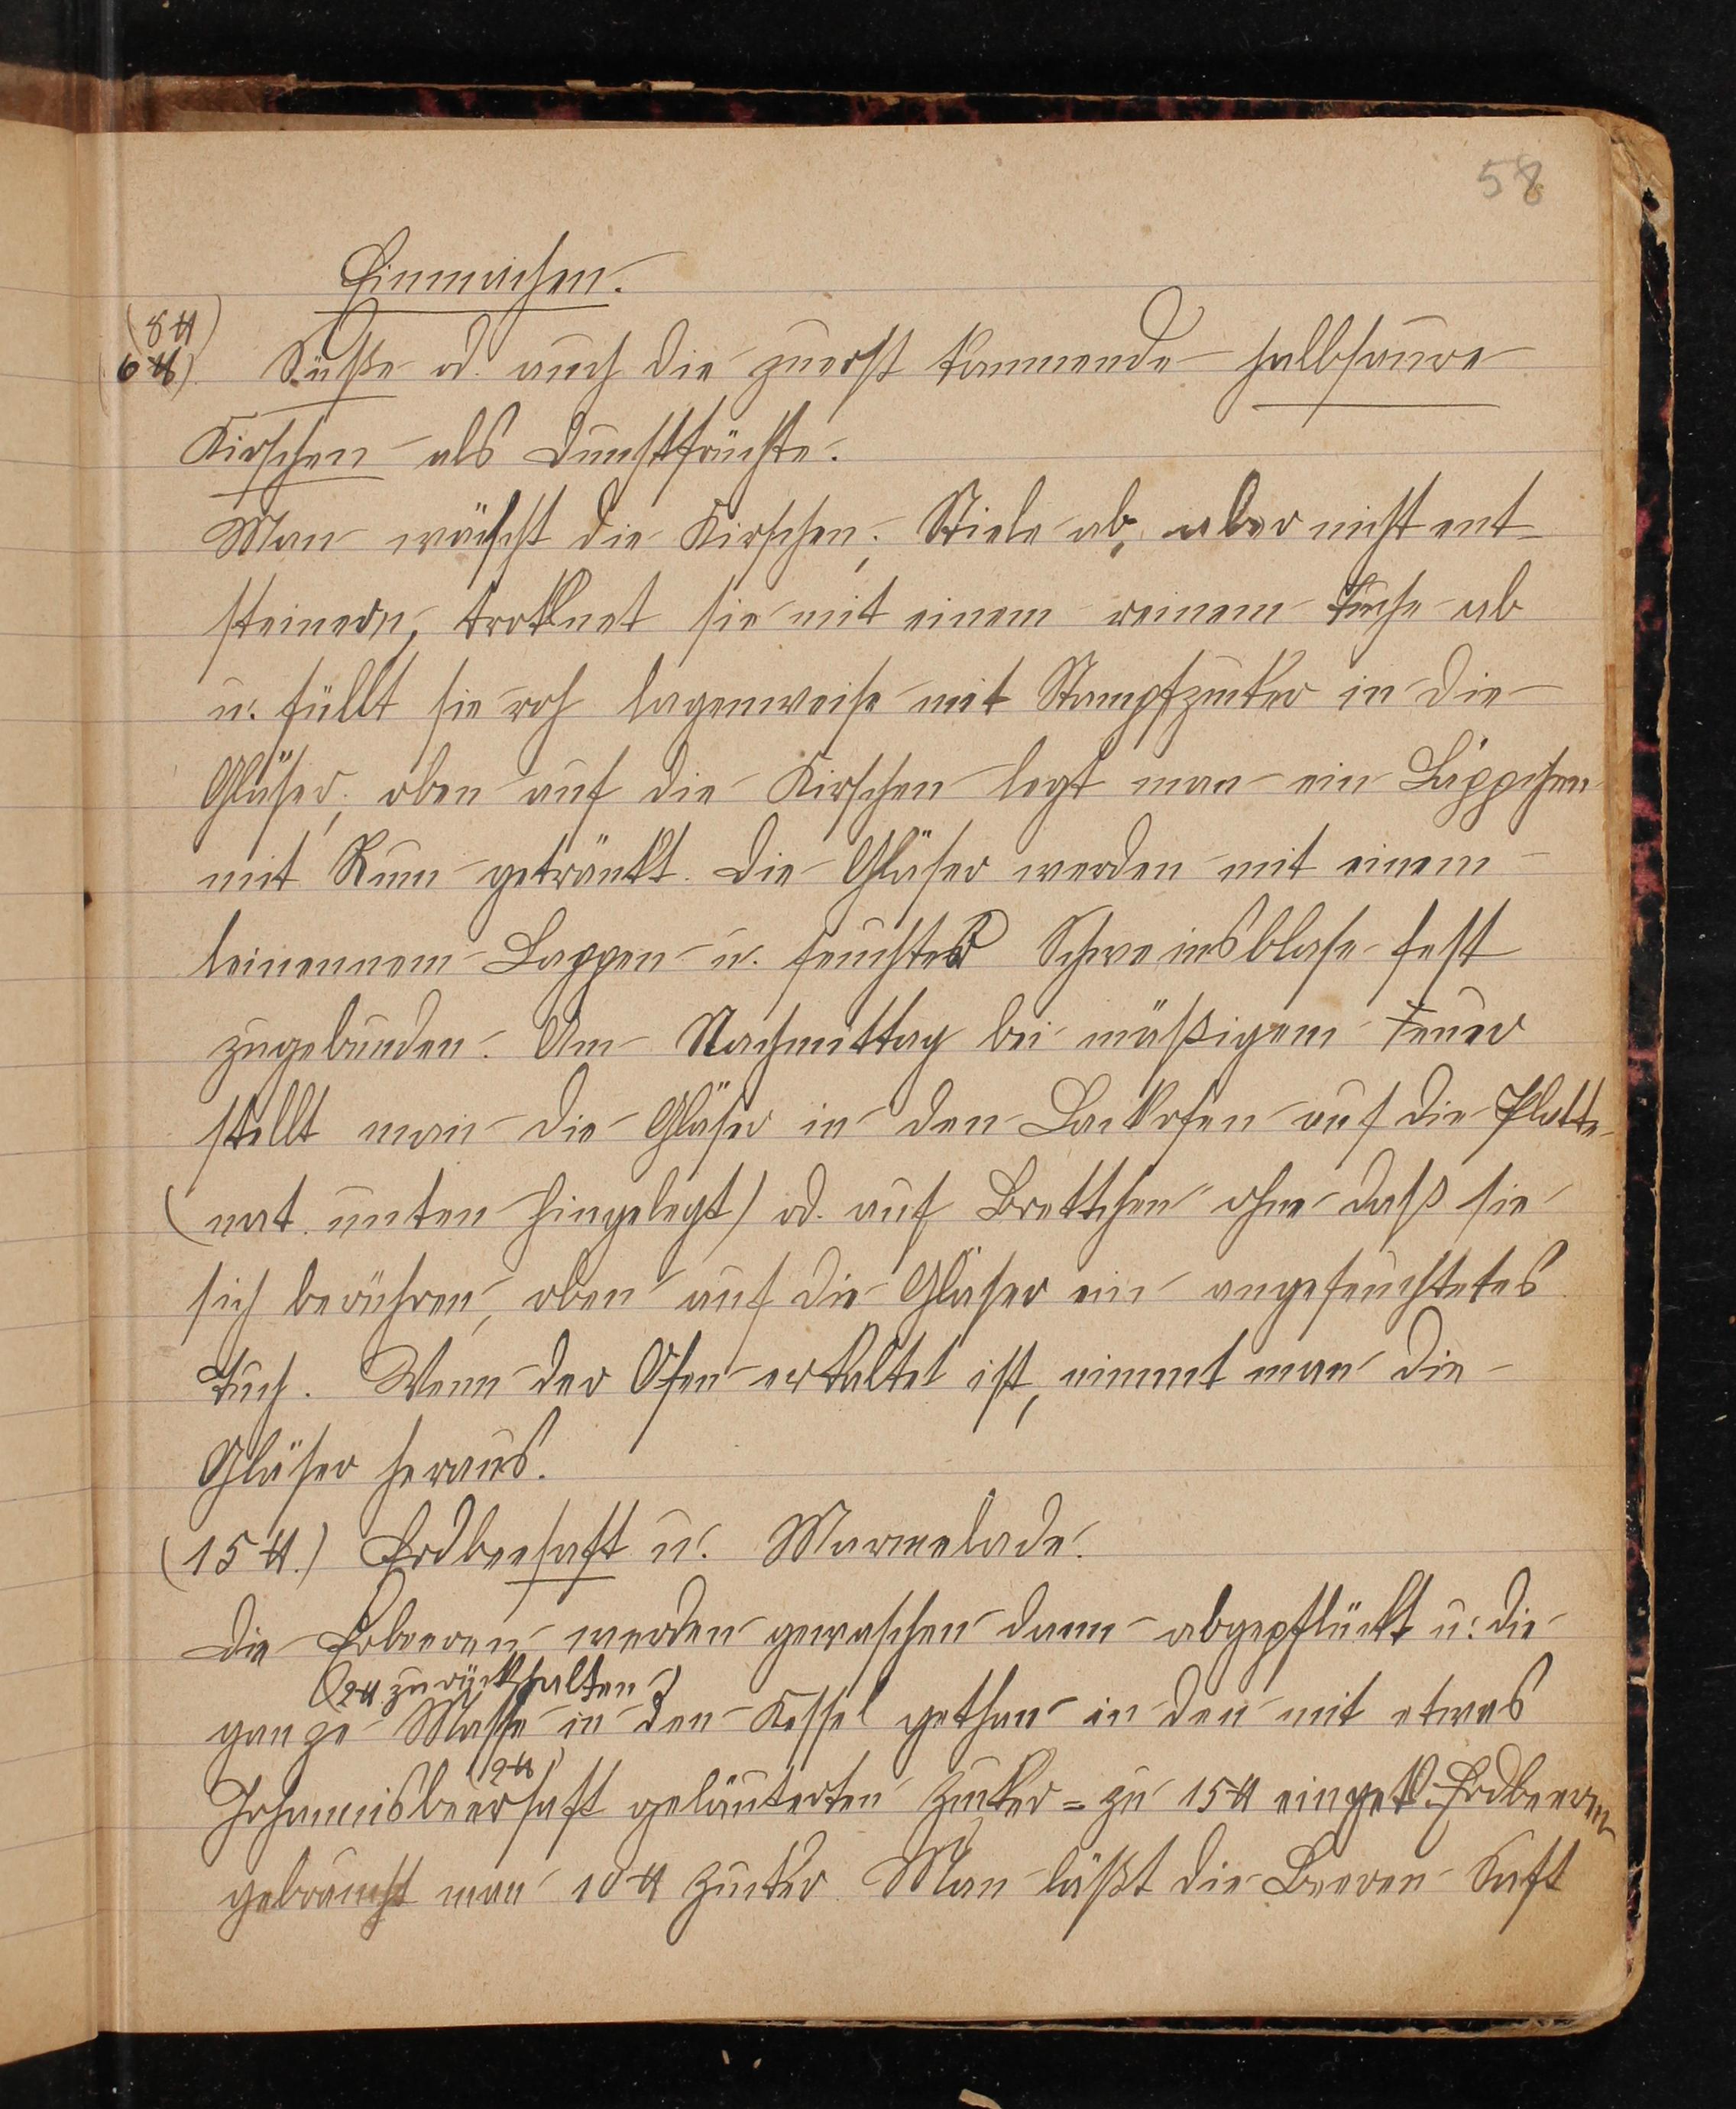 58
Einmachen.
(8 ℔)
(6 ℔). Süße od. auch die zuerst kommende halbsaure
Kirschen als Dunstfrüchte.
Man wäscht die Kirschen, Stiele ab, aber nicht ent-
steinern, troknet sie mit einem reinem Tuche ab
u. füllt sie roh lagenweise mit Stampfzucker in die
Gläser, oben auf die Kirschen legt man ein Läppchen
mit Rum getränkt. Die Gläser werden mit einem
leinennem Lappen u. feuchter Schweinsblase fest
zugebunden. Am Nachmittag bei mäßigem Feuer
stellt man die Gläser in den Backofen auf die Platte
( unten hingelegt) od. auf Brettchen ohne daß sie
sich berühren, oben auf die Gläser ein angefeuchtetes
Tuch. Wenn der Ofen erkaltet ist, nimmt man die
Gläser heraus.
(15 ℔.) Erdbeersaft u. Marmelade.
Die Erbeeren werden gewaschen dann abgepflückt u. die
(2 ℔ zurückhalten)
ganze Masse in den Kessel gethan in den mit etwas
(2 ℔)
Johannisbeersaft geläuterten Zucker = zu 15 ℔ eingek. Erdbeeren
gebraucht man 10 ℔ Zucker. Man läßt die Beeren Saft